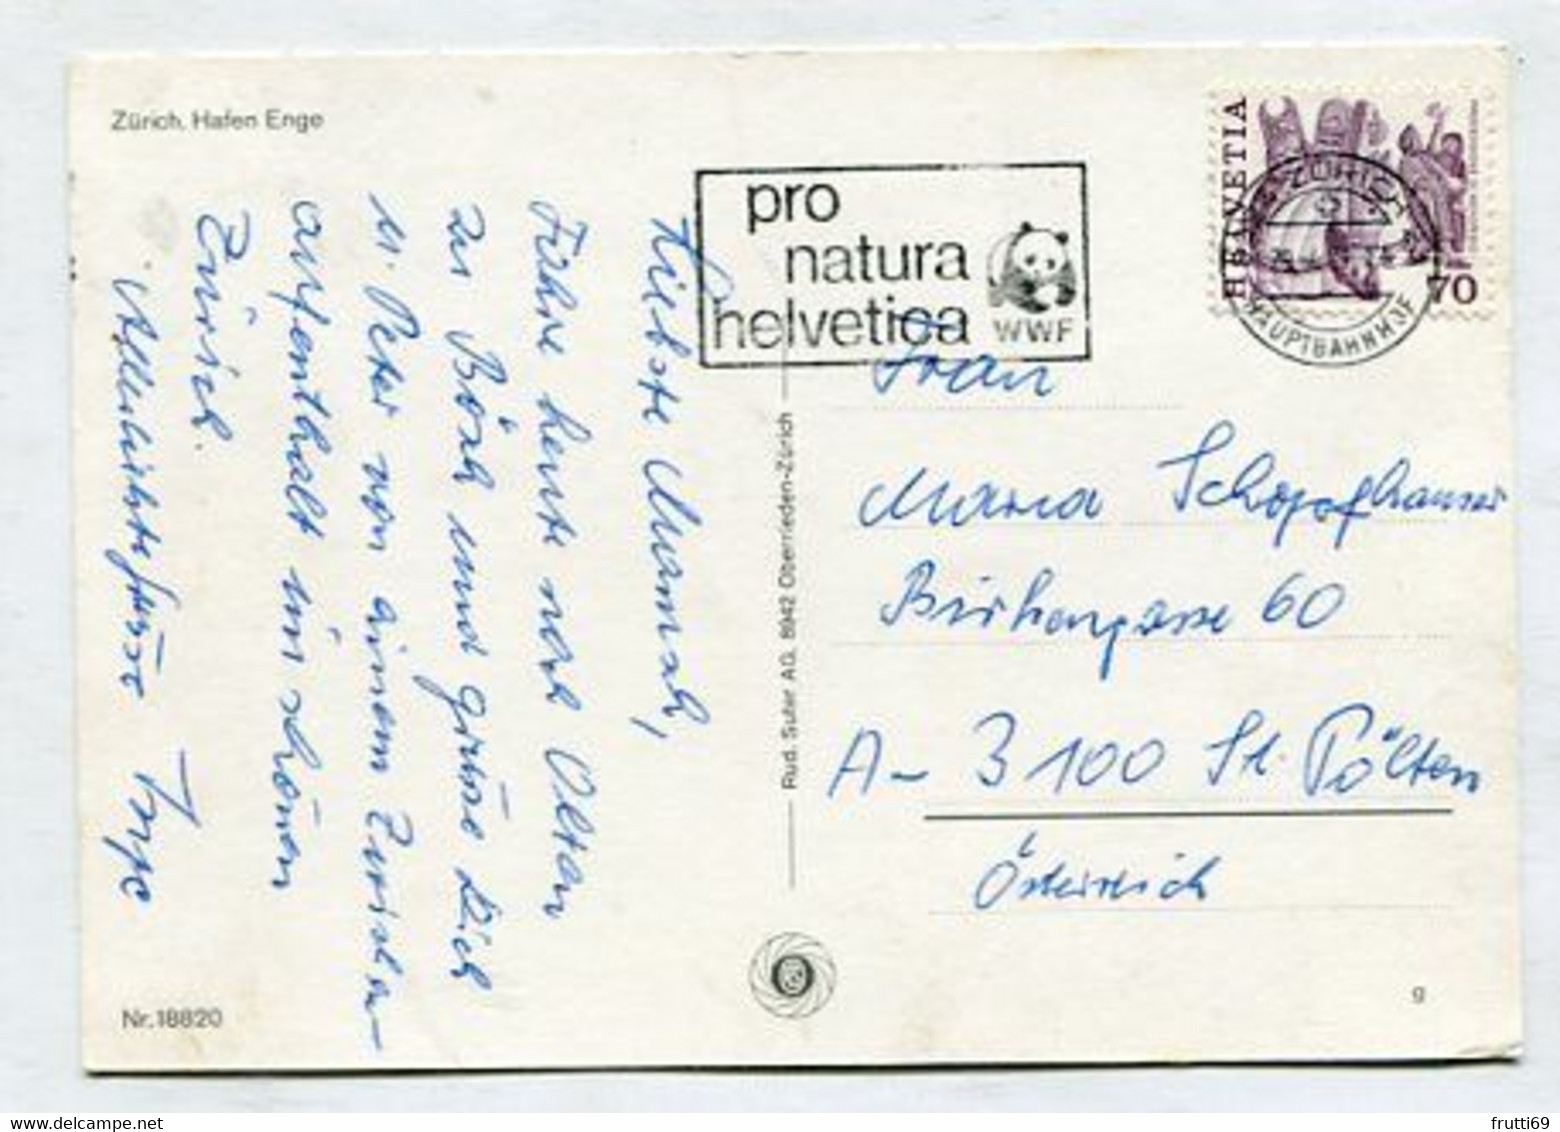 Zürich, Hafen Enge
pro
natura
helvetica
WWF
HELVETIA
70
ZÜRICH
HAUPTBAHNHOF
Liebste Mamach,
Fahre heute nach Olten
zu Böck und grüsse Dich
u. Peter von einem Zwischen-
aufenthalt im schönen
Zürich.
Allerliebste Grüsse Inge
Rud. Suter AG, 8942 Oberrieden-Zürich
Frau
Maria Schopfhauser
Birkengasse 60
A- 3100 St. Pölten
Österreich
Nr. 18820
g
frutti69